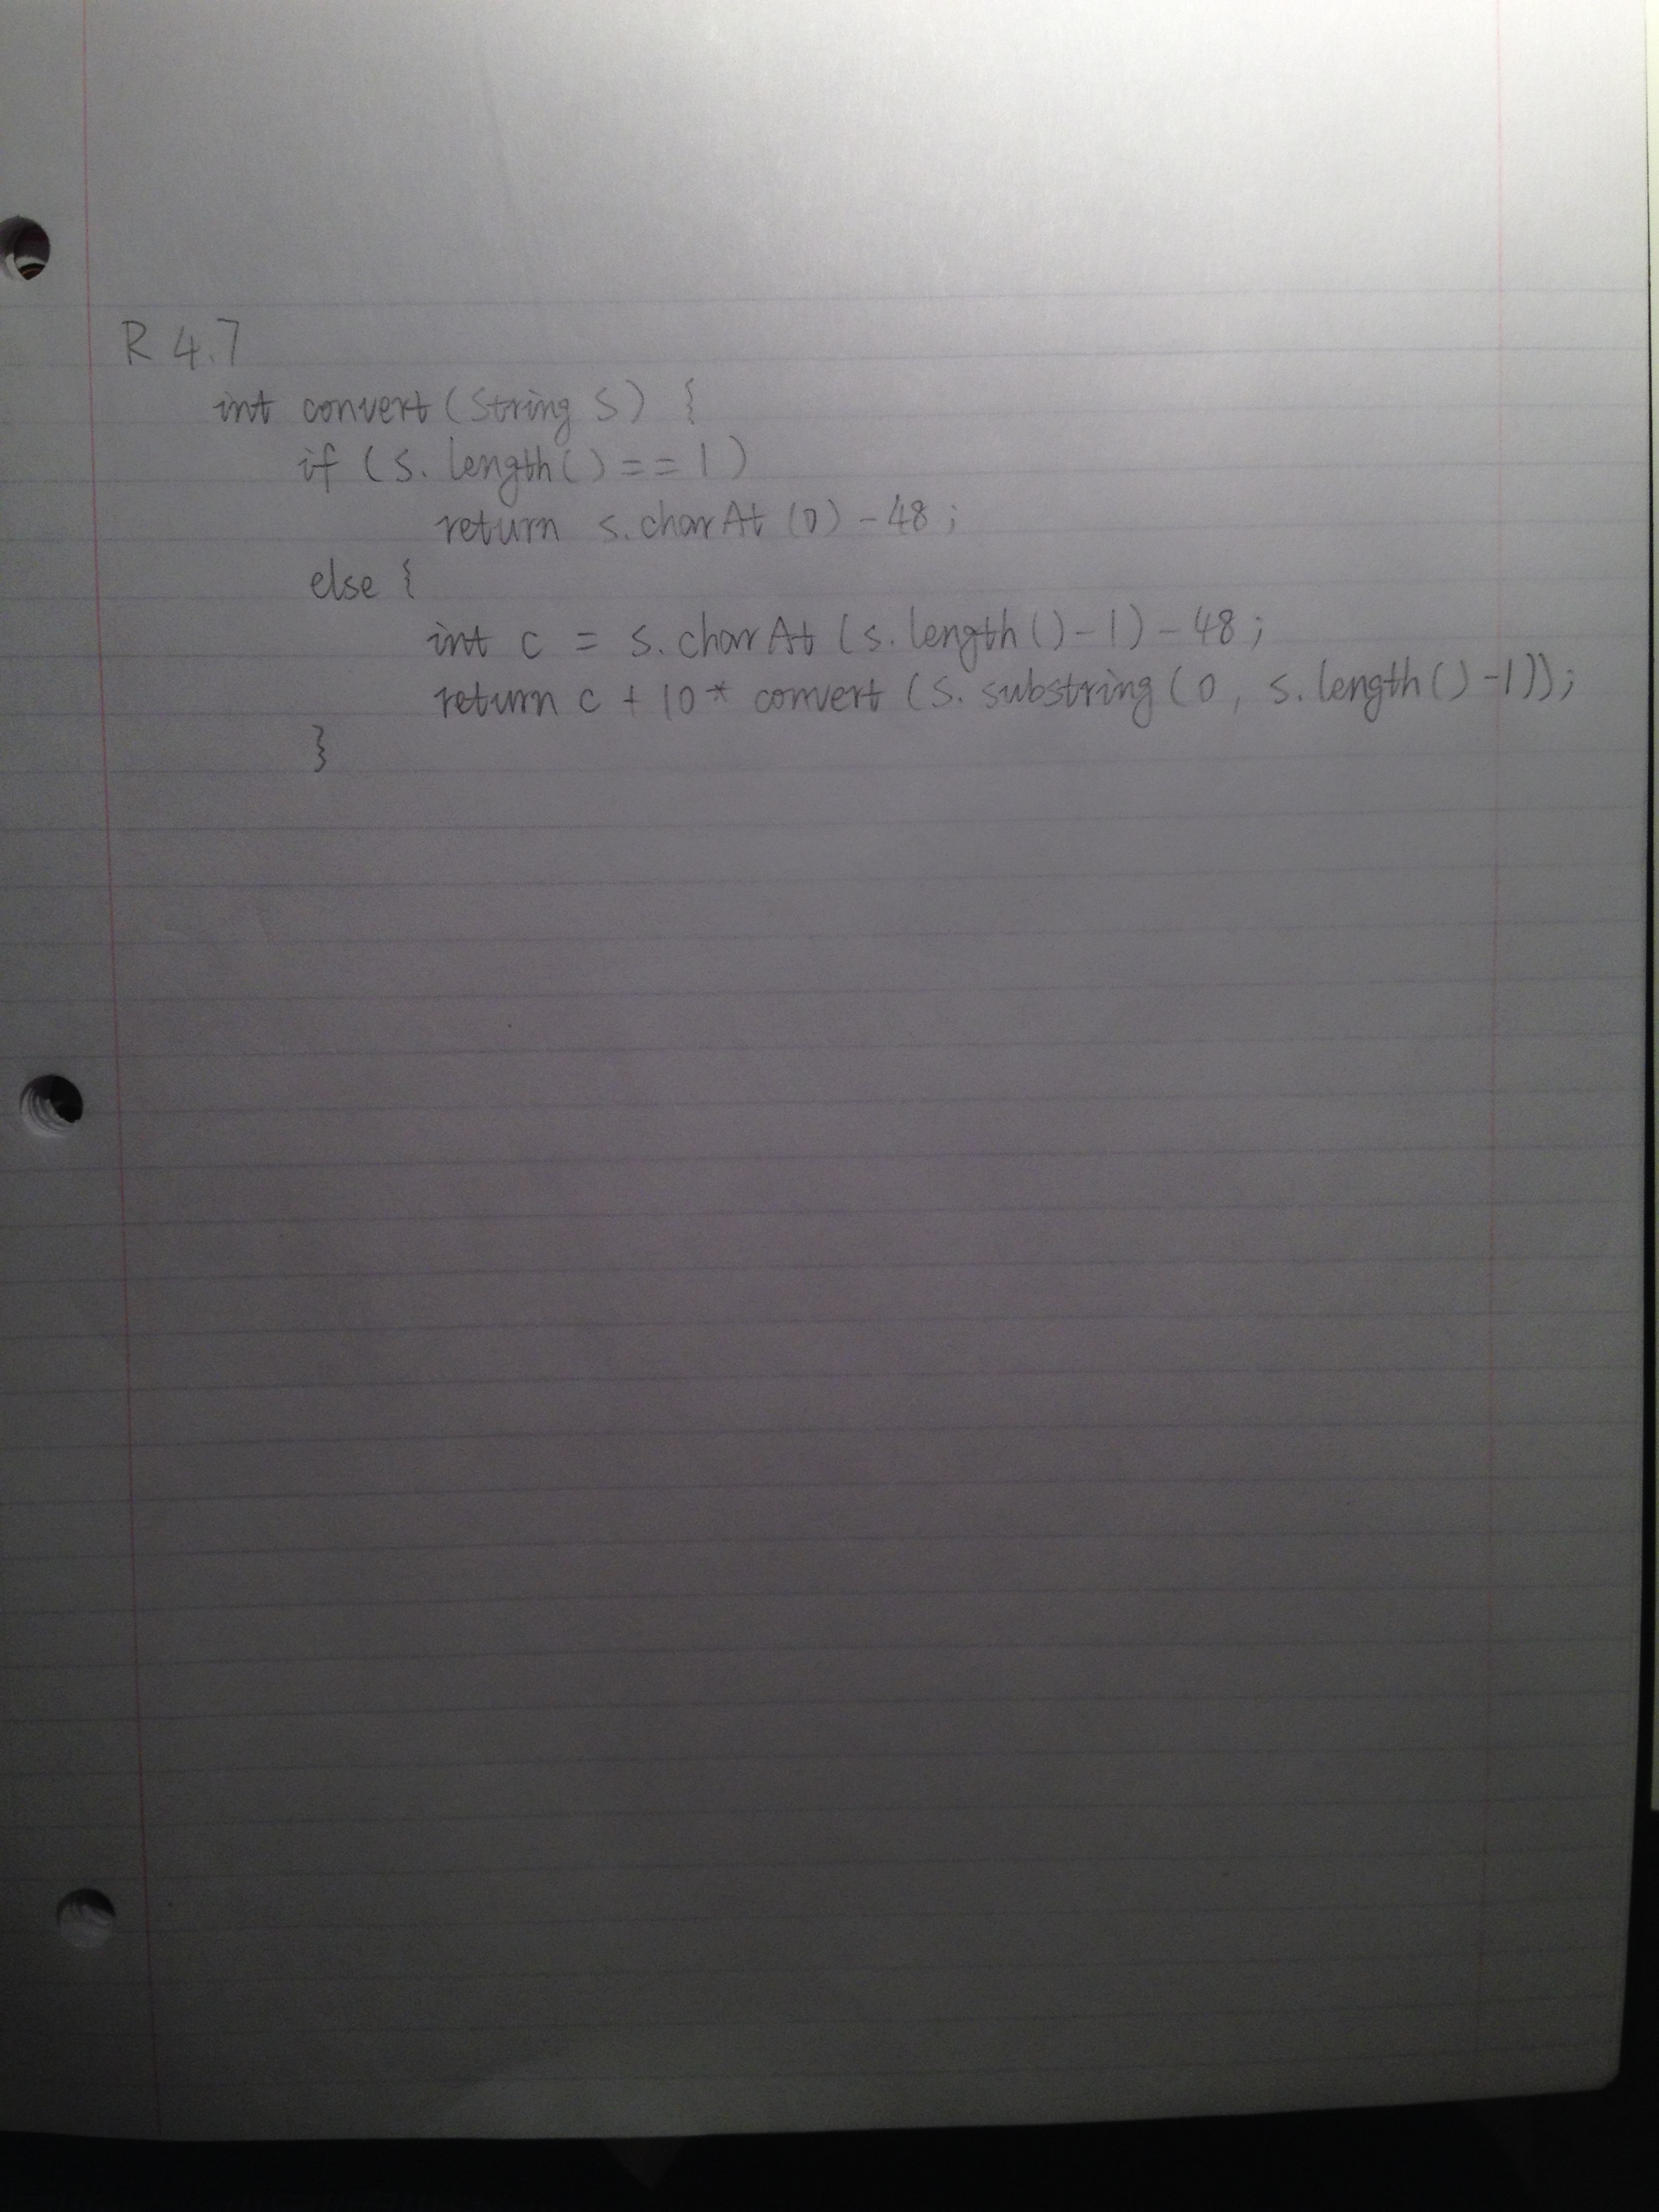 R 4.7
int convert (String s) {
if (s. length () == 1)
return s. charAt (0) - 48 ;
else {
int c = s. charAt (s. length () - 1) - 48 ;
return c + 10 * convert (s. substring (0, s. length () - 1)) ;
}